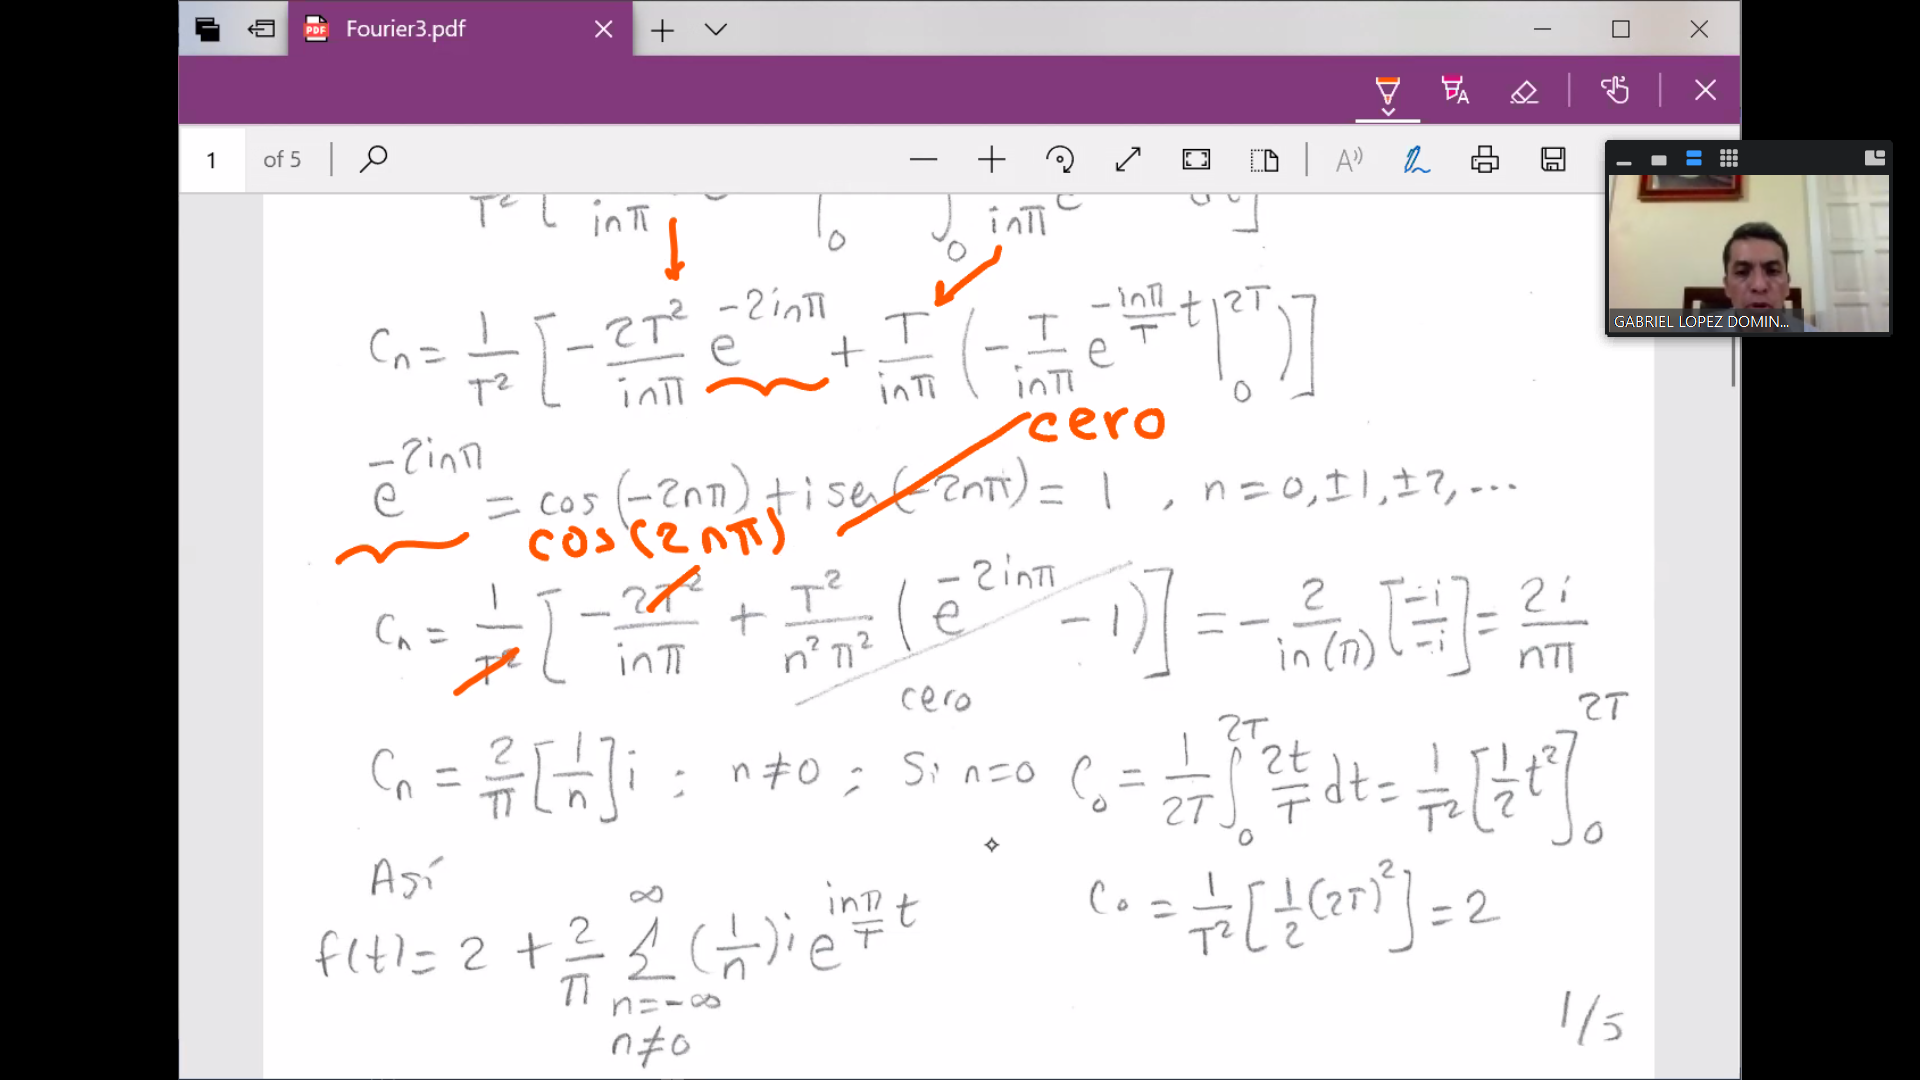 Fourier3.pdf
1 of 5
GABRIEL LOPEZ DOMIN...
T² [ inπ |₀ ∫₀ inπ e dt ]
Cn = 1/T² [ - 2T²/inπ e^(-2inπ) + T/inπ ( - T/inπ e^(-inπ/T t) |₀^2T ) ]
cero
e^(-2inπ) = cos(-2nπ) + i sen(-2nπ) = 1 , n = 0, ±1, ±2, ...
cos(2nπ)
Cn = 1/T² [ - 2T²/inπ + T²/n²π² ( e^(-2inπ) - 1 ) ] = - 2/in(π) [ -i/-i ] = 2i/nπ
cero
Cn = 2/π [ 1/n ] i ; n ≠ 0 ; Si n=0 C₀ = 1/2T ∫₀^2T 2t/T dt = 1/T² [ 1/2 t² ]₀^2T
Así
C₀ = 1/T² [ 1/2 (2T)² ] = 2
f(t) = 2 + 2/π Σ (n=-∞, n≠0)^∞ (1/n) i e^(inπ/T t)
1/5